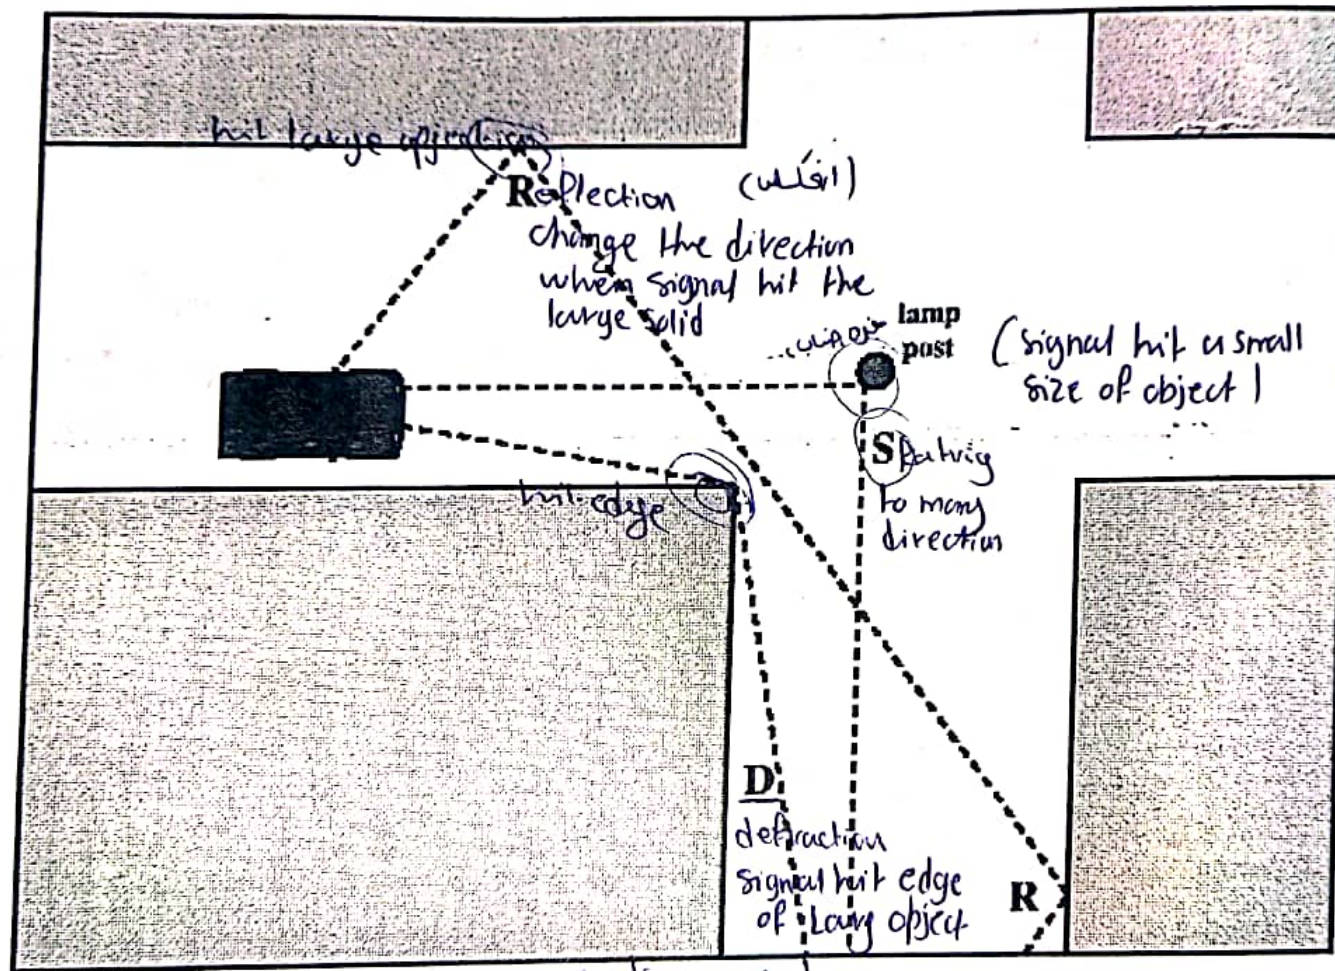 hit large
Reflection
change the direction
when signal hit the
large solid
lamp
post
(signal hit a small
size of object)
S
to many
direction
hit edge
D
defraction
signal hit edge
of Larg object
R